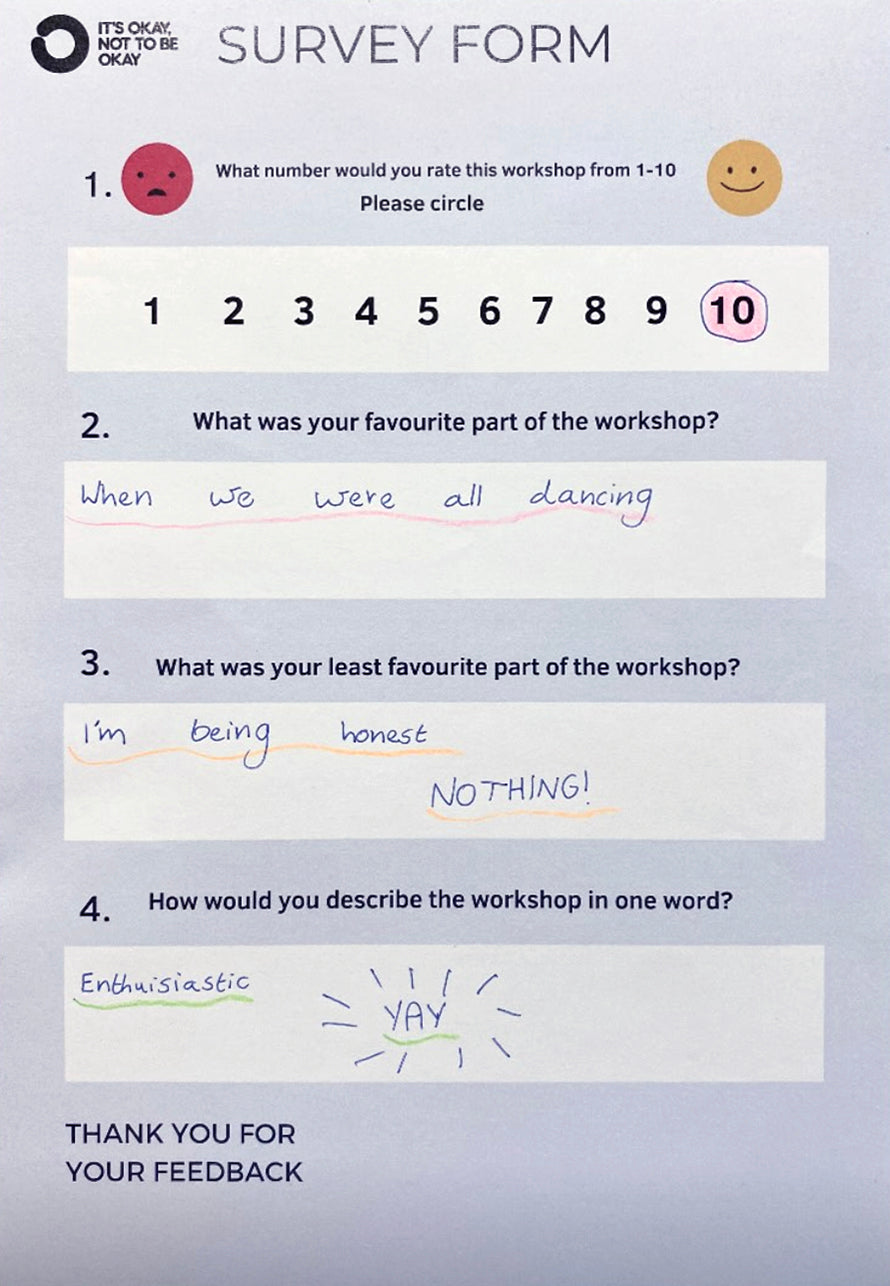 IT'S OKAY,
NOT TO BE
OKAY
SURVEY FORM
1.
What number would you rate this workshop from 1-10
Please circle
1 2 3 4 5 6 7 8 9 10
2. What was your favourite part of the workshop?
When we were all dancing
3. What was your least favourite part of the workshop?
I'm being honest
NOTHING!
4. How would you describe the workshop in one word?
Enthuisiastic
YAY
THANK YOU FOR
YOUR FEEDBACK